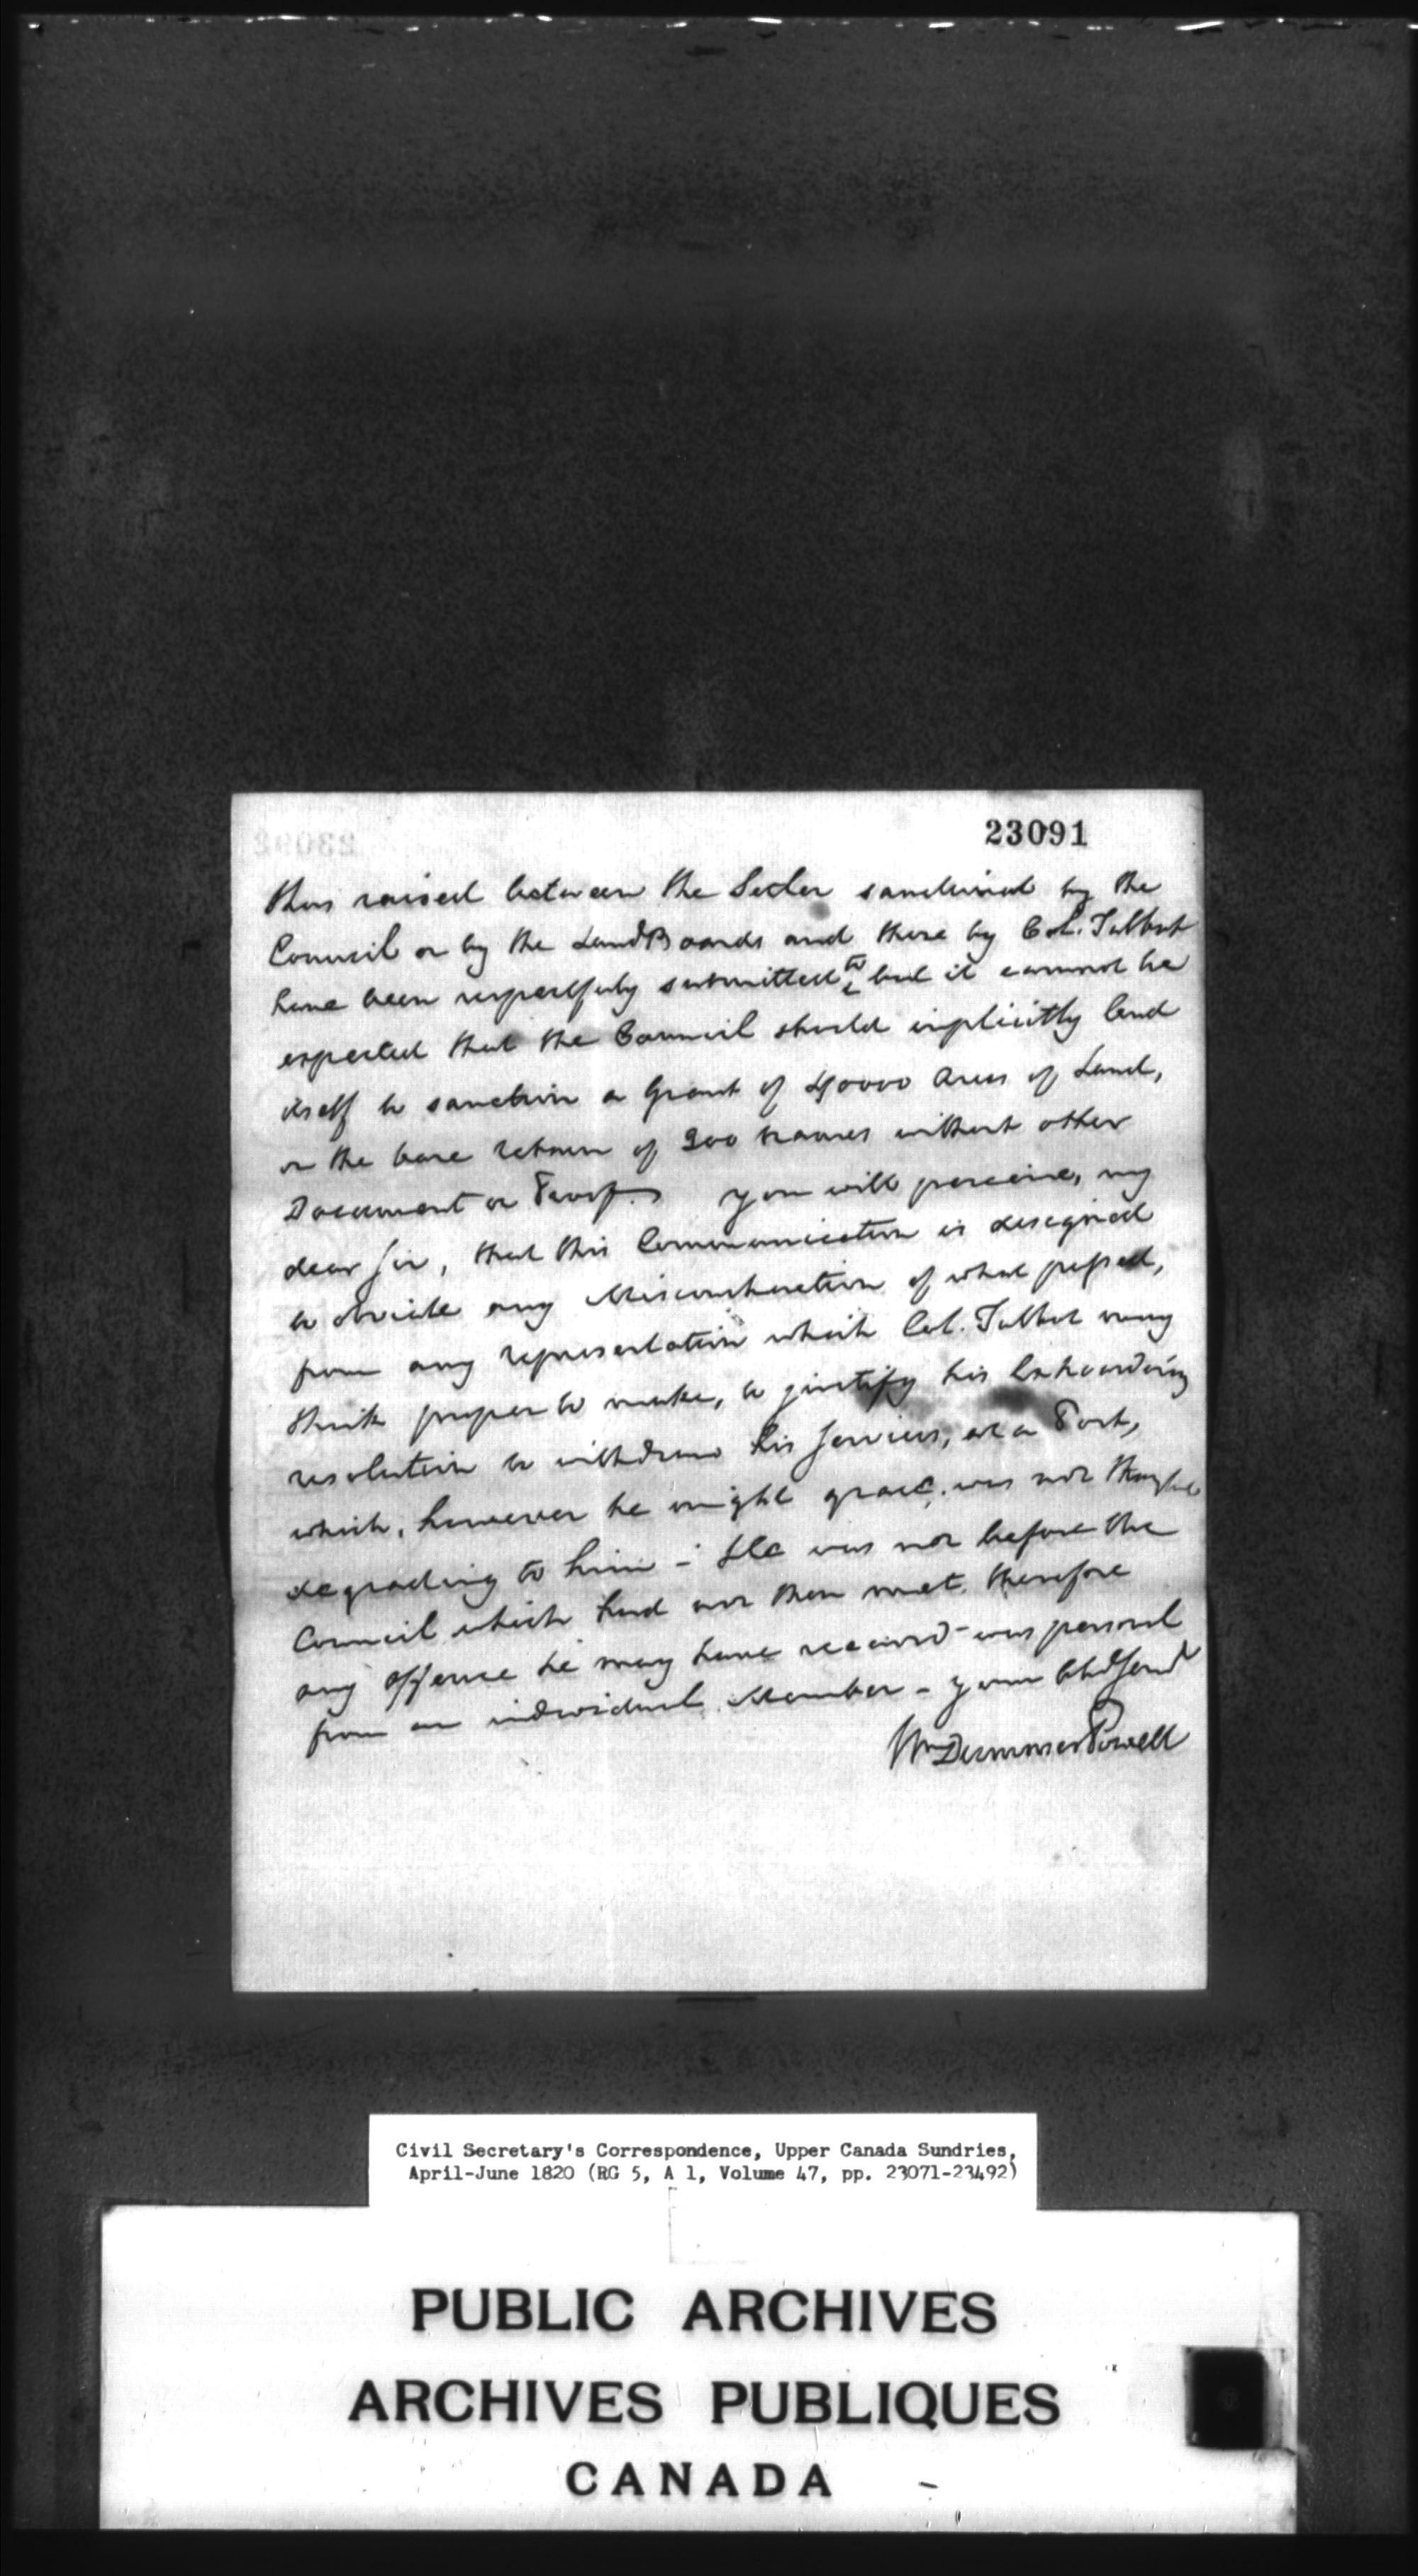 23091
thus raised between the Setler sanctioned by the
Council or by the Land Boards and those by Col. Talbot
have been respectfully submitted to, but it cannot be
expected that the Council should implicitly lend
itself to sanction a Grant of 40000 Acres of Land,
on the bare return of 200 names without other
Document or Proof. you will perceive, my
dear Sir, that this Communication is designed
to obviate any Misconstruction of what passed,
from any representation which Col. Talbot may
think proper to make, to justify his Extraordinary
resolution to withdraw his services, at a Post,
which, however he might grace, was not thought
degrading to him - He was not before the
Council which had not then met. therefore
any offence he may have received was personal
from an individual Member - your Obd Servt
Wm Dummer Powell
Civil Secretary's Correspondence, Upper Canada Sundries,
April-June 1820 (RG 5, A 1, Volume 47, pp. 23071-23492)
PUBLIC ARCHIVES
ARCHIVES PUBLIQUES
CANADA